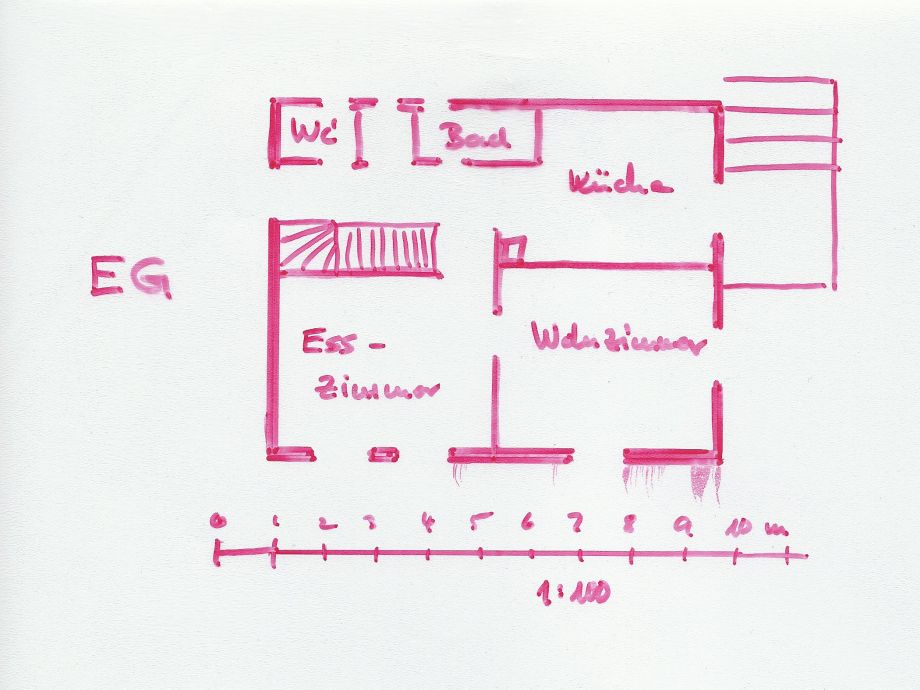 WC
Bad
Küche
EG
Ess-
zimmer
Wohnzimmer
0 1 2 3 4 5 6 7 8 9 10 m
1:100